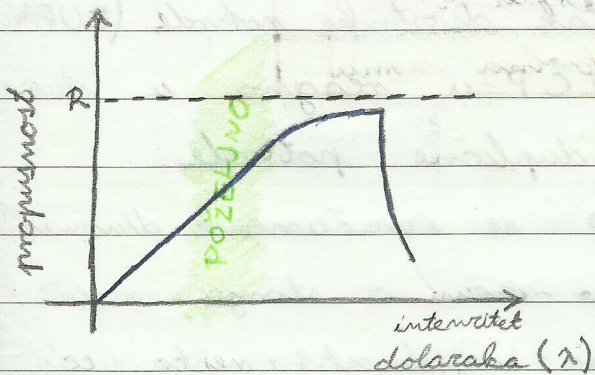 R
propusnost
POŽELJNO
intenzitet
dolazaka (λ)